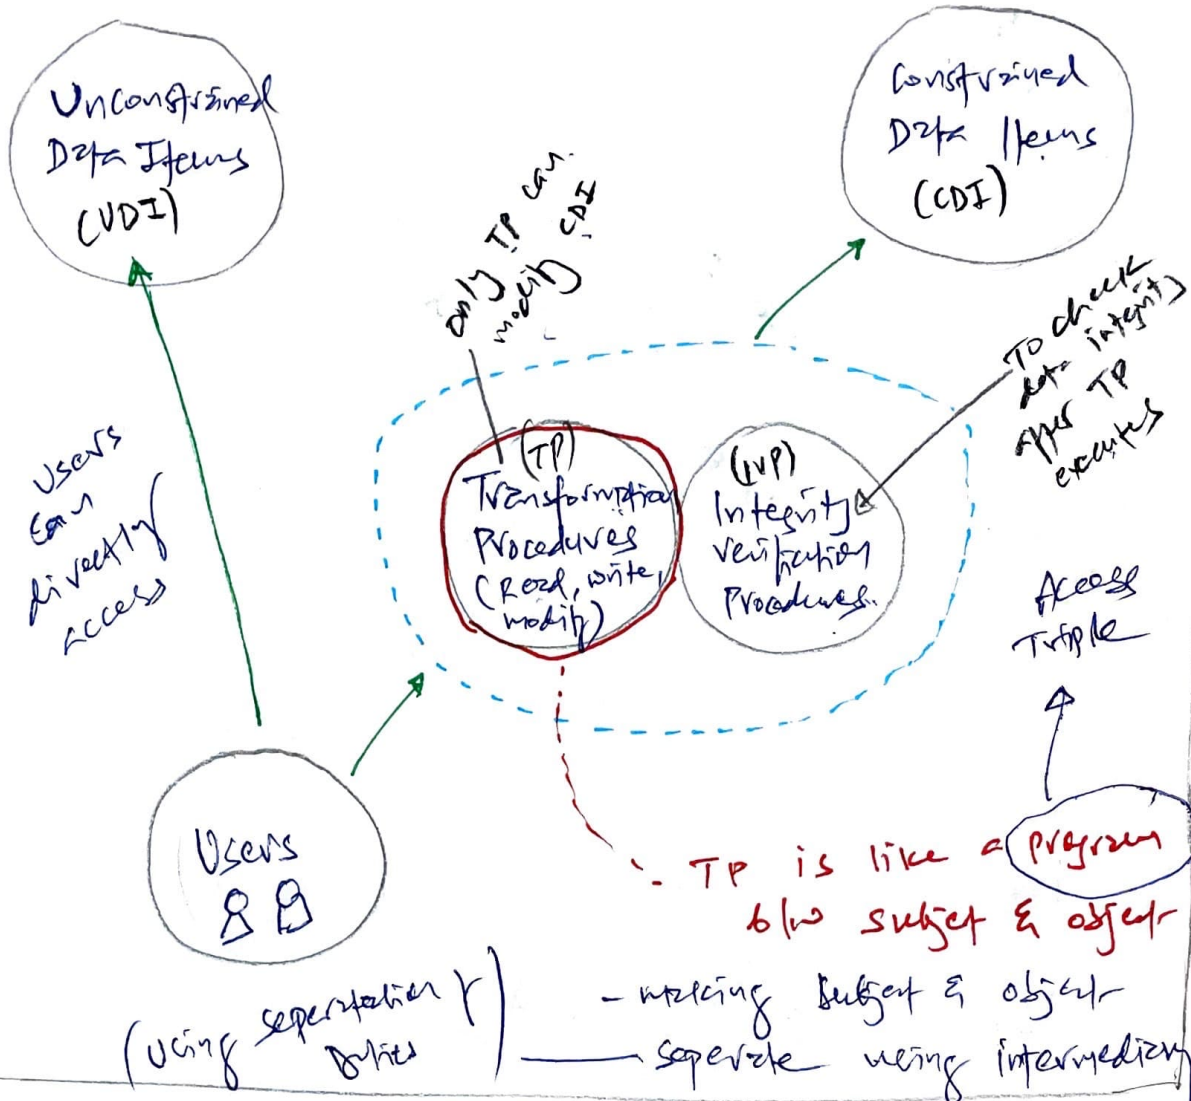 Unconstrained
Data Items
(UDI)
Constrained
Data Items
(CDI)
only TP can
modify CDI
To check
data integrity
after TP
executes
Users
can
directly
access
(TP)
Transformation
Procedures
(Read, write,
modify)
(IVP)
Integrity
verification
Procedures.
Access
Triple
Users
- TP is like a program
b/w subject & object
(Using seperation of
Duties)
- making subject & object
seperate using intermediary